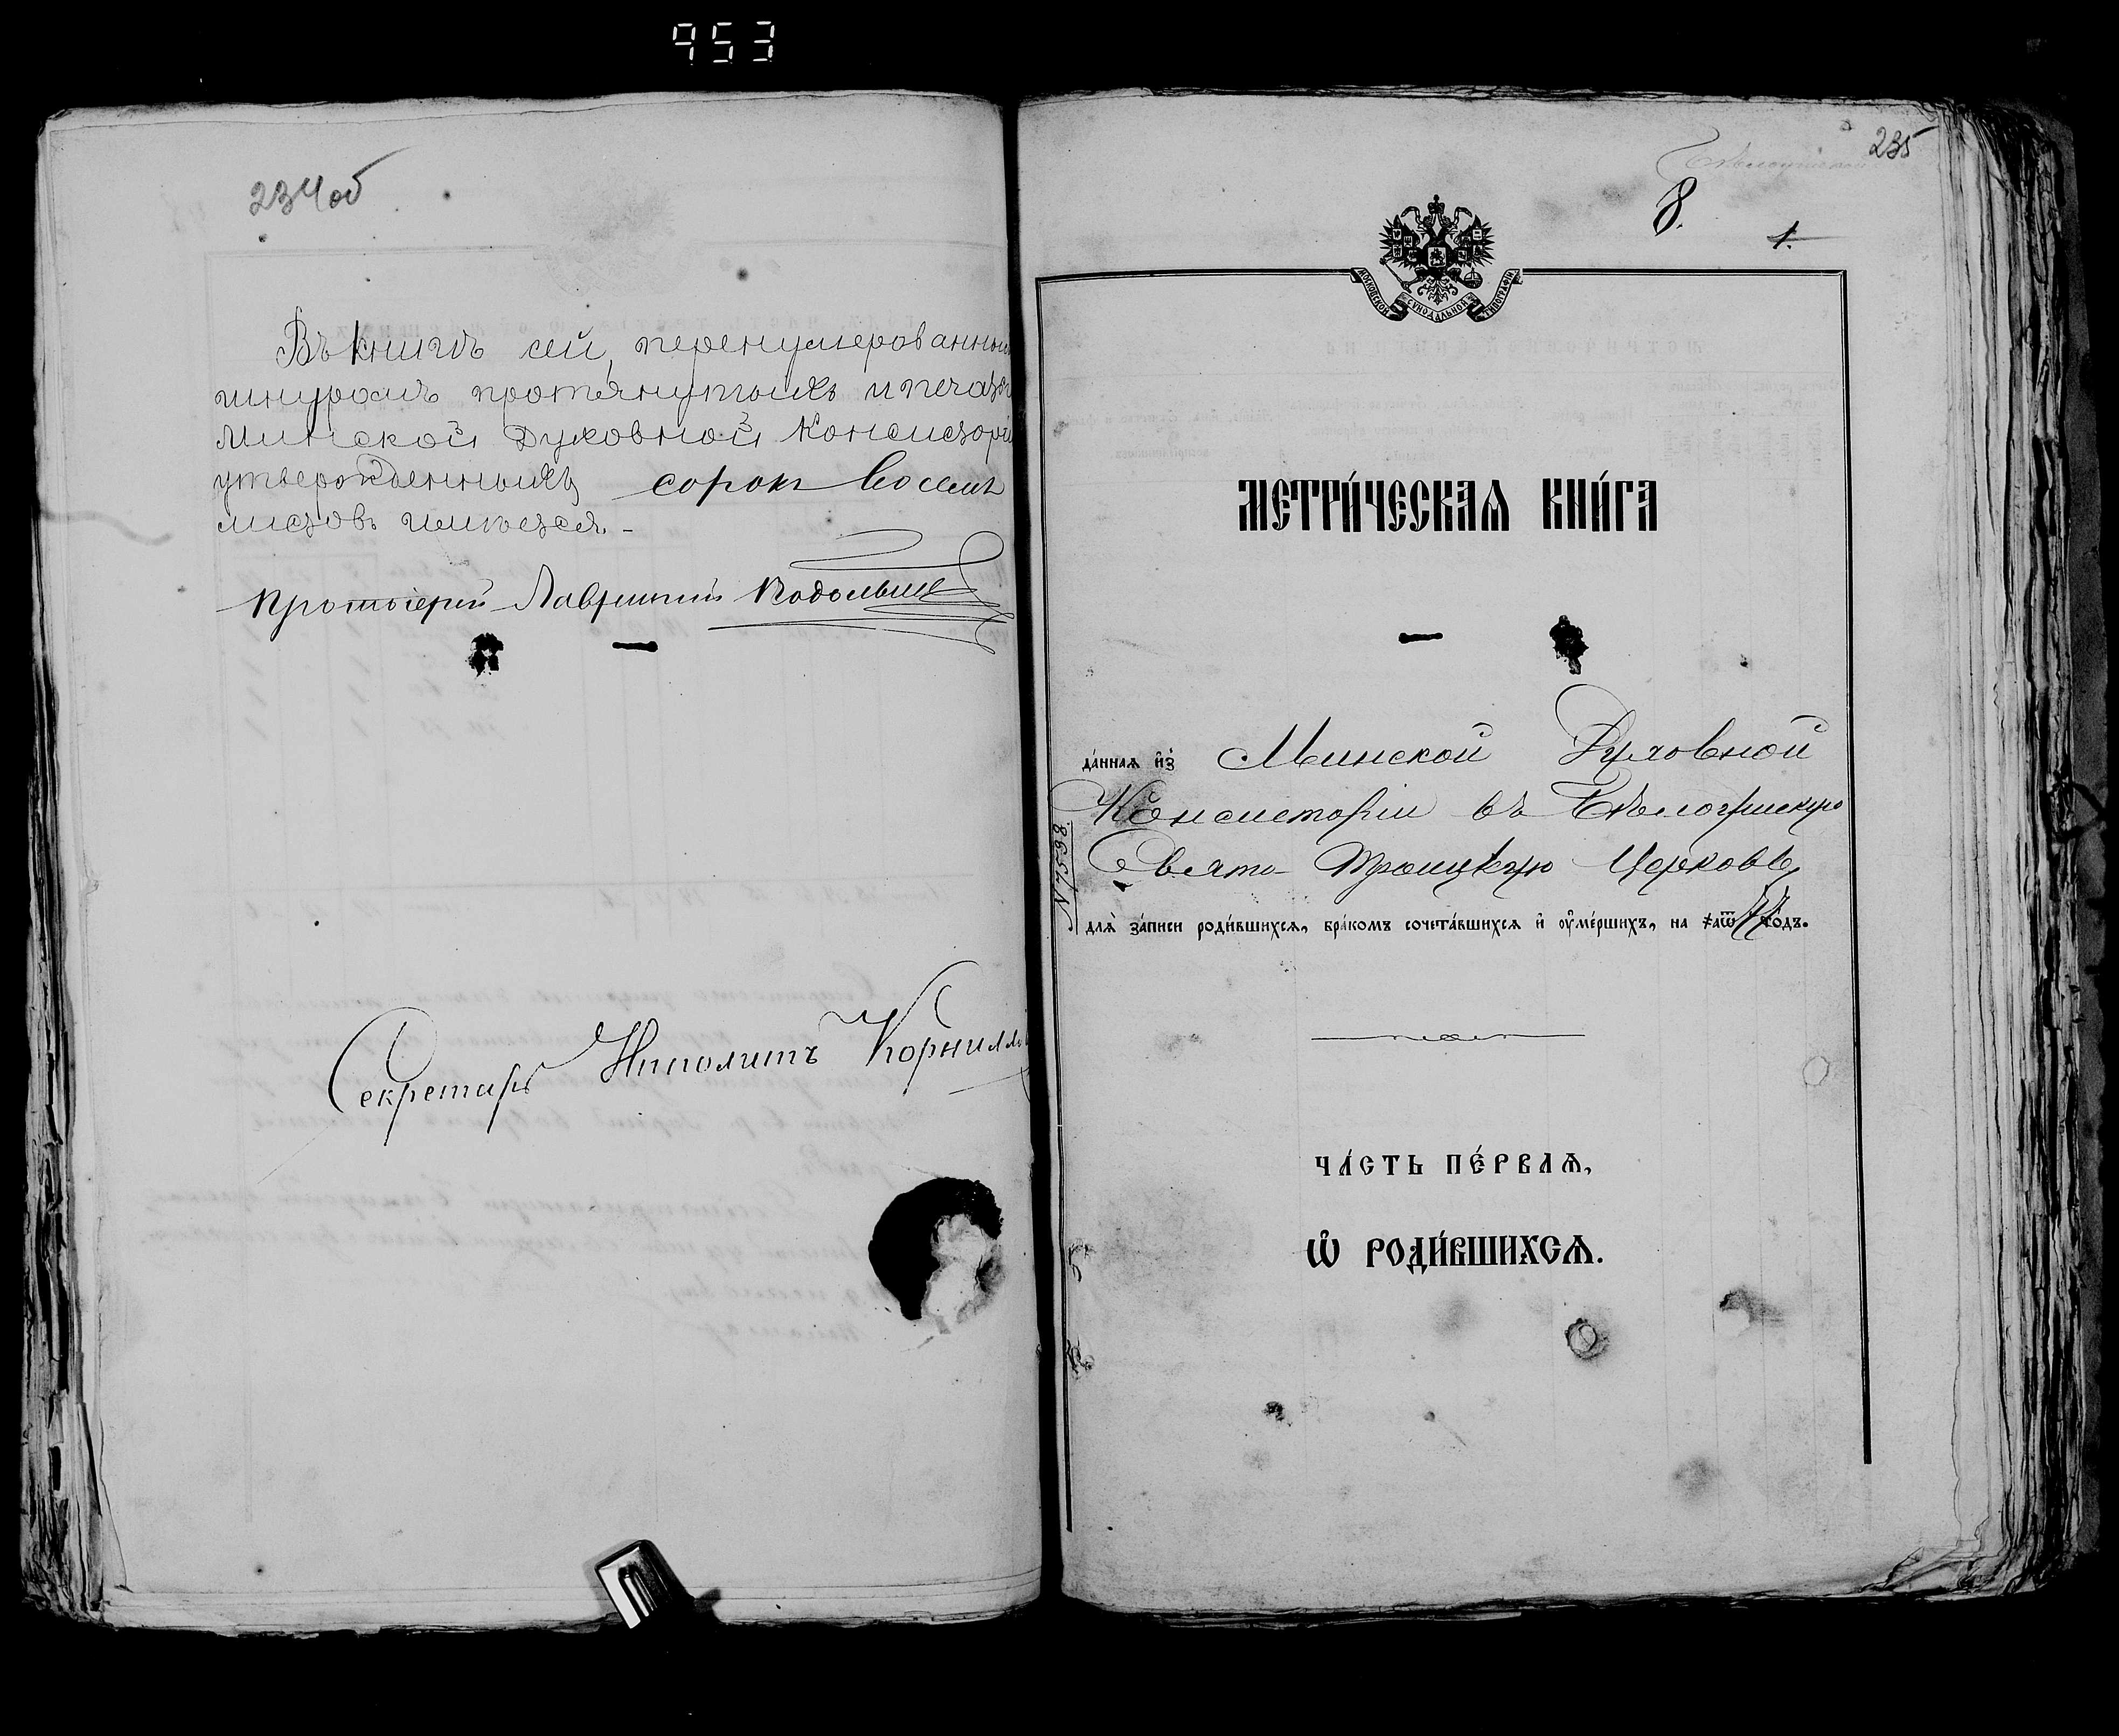 953
234об
Въ книгѣ сей, перенумерованныхъ
шнуромъ протянутыхъ и печатью
Минской Духовной Консисторіи
утвержденныхъ сорокъ восемь
листовъ имѣется. -
Протоіерей Лаврентій
Секретарь Ипполитъ Корнилло
235
8.
1.
МОСКОВСКОЙ СѴНОДАЛЬНОЙ ТИПОГРАФІИ
МЕТРИ́ЧЕСКАѦ КНИ́ГА
да́ннаѧ и҆з̾ Минской Духовной
Консисторіи въ Бѣлоушскую
Свято- Троицкую Церковь
N 7598.
длѧ̀ за́писи роди́вшихсѧ, бра́комъ сочета́вшихсѧ и҆ оу҆ме́ршихъ, на ҂аѿ го́дъ.
ЧА́СТЬ ПЕ́РВАѦ,
Ѡ҆ РОДИ́ВШИХСѦ.